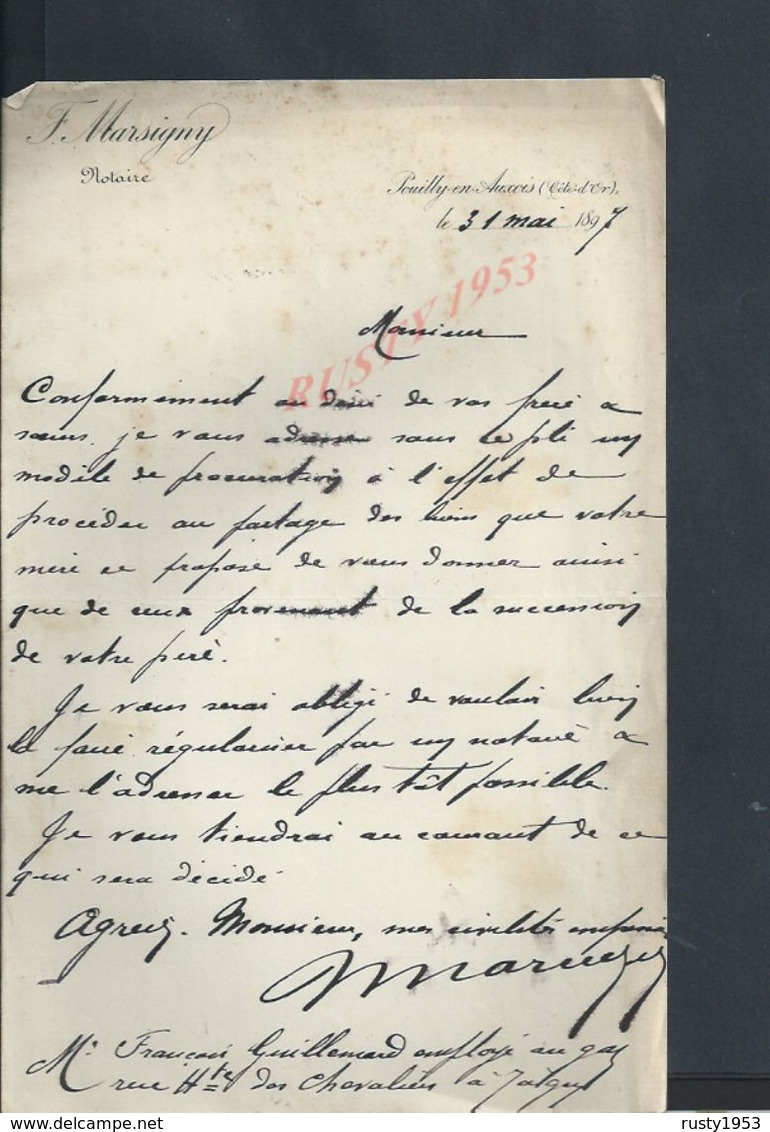 F. Marsigny
Notaire
Pouilly-en-Auxois (Côte-d'Or),
le 31 mai 1897
RUSTY 1953
Monsieur
Conformément au désir de vos frere &
sœurs, je vous adresse sous ce pli un
modèle de procuration à l'effet de
procéder au partage des biens que votre
mère se propose de vous donner ainsi
que de ceux provenant de la succession
de votre père.
Je vous serai obligé de vouloir bien
la faire régulariser par un notaire &
me l'adresser le plus tôt possible.
Je vous tiendrai au courant de ce
qui sera décidé
Agréez, Monsieur, mes civilités empressées
Marsigny
Mr François Guillemard employé au gaz
rue Hte des Chevaliers à
delcampe.net
rusty1953